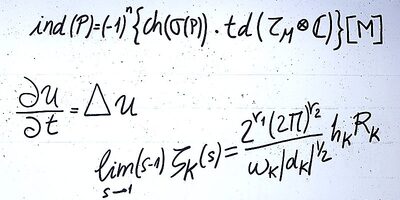 ind(P)=(-1)ⁿ{ch(σ(P)).td(τ_M⊗ℂ)}[M]
∂u/∂t=Δu
lim_{s→1}(s-1)ζ_K(s)=2^{r₁}(2π)^{r₂}/(ω_K|d_K|^{1/2}) h_K R_K